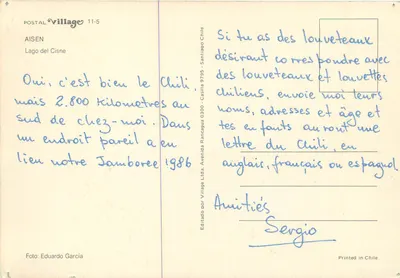 POSTAL "Village" 11-5
AISEN
Lago del Cisne
Oui, c'est bien le Chili,
mais 2.800 Kilometres au
sud de chez-moi. Dans
un endroit pareil a eu
lieu notre Jamboree 1986
Foto: Eduardo García
Editado por Village Ltda. Avenida Manzano 0390 - Casilla 9795 - Santiago-Chile
Si tu as des louveteaux
désirant correspondre avec
des louveteaux et louvettes
chiliens, envoie moi leurs
noms, adresses et âge et
tes enfants auront une
lettre du Chili, en
anglais, français ou espagnol.
Amitiés
Sergio
Printed in Chile